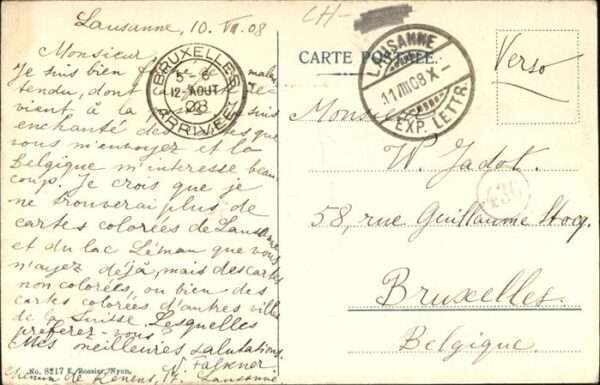 Lausanne, 10. VII. 08
Monsieur
Je suis bien
tendu, dont
vient à la suis
enchanté des que
vous m'envoyez et la
Belgique m'interesse beau-
coup. Je crois que je
ne trouverai plus de
cartes colorées de Lausanne
et du lac Léman que vous
n'ayez déjà, mais des cartes
non colorées, ou bien des
cartes colorées d'autres villes
de la Suisse. Lesquelles
préférez-vous
Mes meilleures salutations.
Falkner
Chemin de Renens, 17. Lausanne
No. 8217 E. Rossier, Nyon.
BRUXELLES
5-6
12-AOUT
08
ARRIVEE
CH-
CARTE POSTALE.
LAUSANNE
11 VIII 08 X-
EXP. LETTR.
Verso
Monsieur
W. Jadot.
436
58, rue Guillaume Stocq.
Bruxelles.
Belgique.